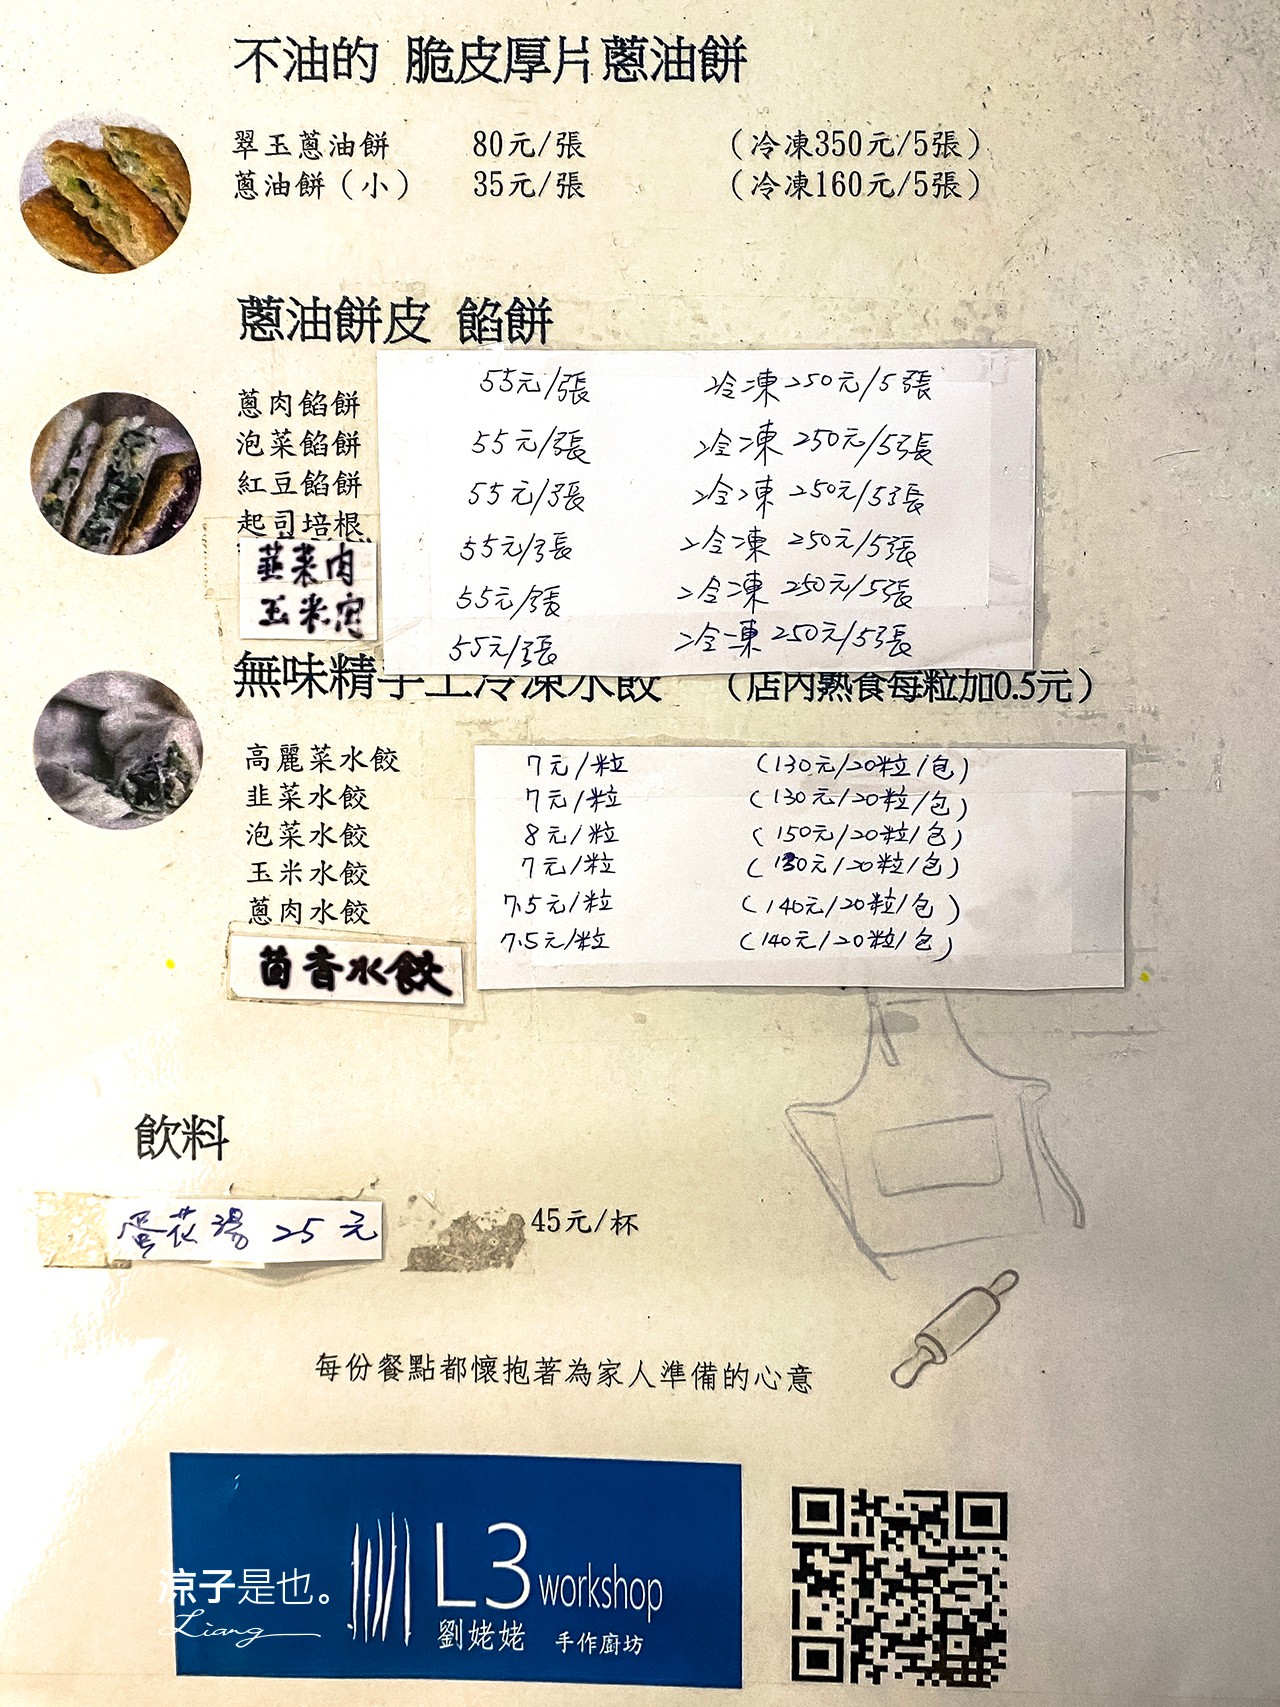 不油的 脆皮厚片蔥油餅
翠玉蔥油餅 80元/張 (冷凍350元/5張)
蔥油餅(小) 35元/張 (冷凍160元/5張)
蔥油餅皮 餡餅
蔥肉餡餅 55元/張 冷凍250元/5張
泡菜餡餅 55元/張 冷凍250元/5張
紅豆餡餅 55元/張 冷凍250元/5張
起司培根 55元/張 冷凍250元/5張
韮菜肉 55元/張 冷凍250元/5張
玉米肉 55元/張 冷凍250元/5張
無味精手工冷凍水餃 (店內熟食每粒加0.5元)
高麗菜水餃 7元/粒 (130元/20粒/包)
韭菜水餃 7元/粒 (130元/20粒/包)
泡菜水餃 8元/粒 (150元/20粒/包)
玉米水餃 7元/粒 (130元/20粒/包)
蔥肉水餃 7.5元/粒 (140元/20粒/包)
茴香水餃 7.5元/粒 (140元/20粒/包)
飲料
蛋花湯 25元 45元/杯
每份餐點都懷抱著為家人準備的心意
L3 workshop
劉姥姥 手作廚坊
涼子是也。
Liang